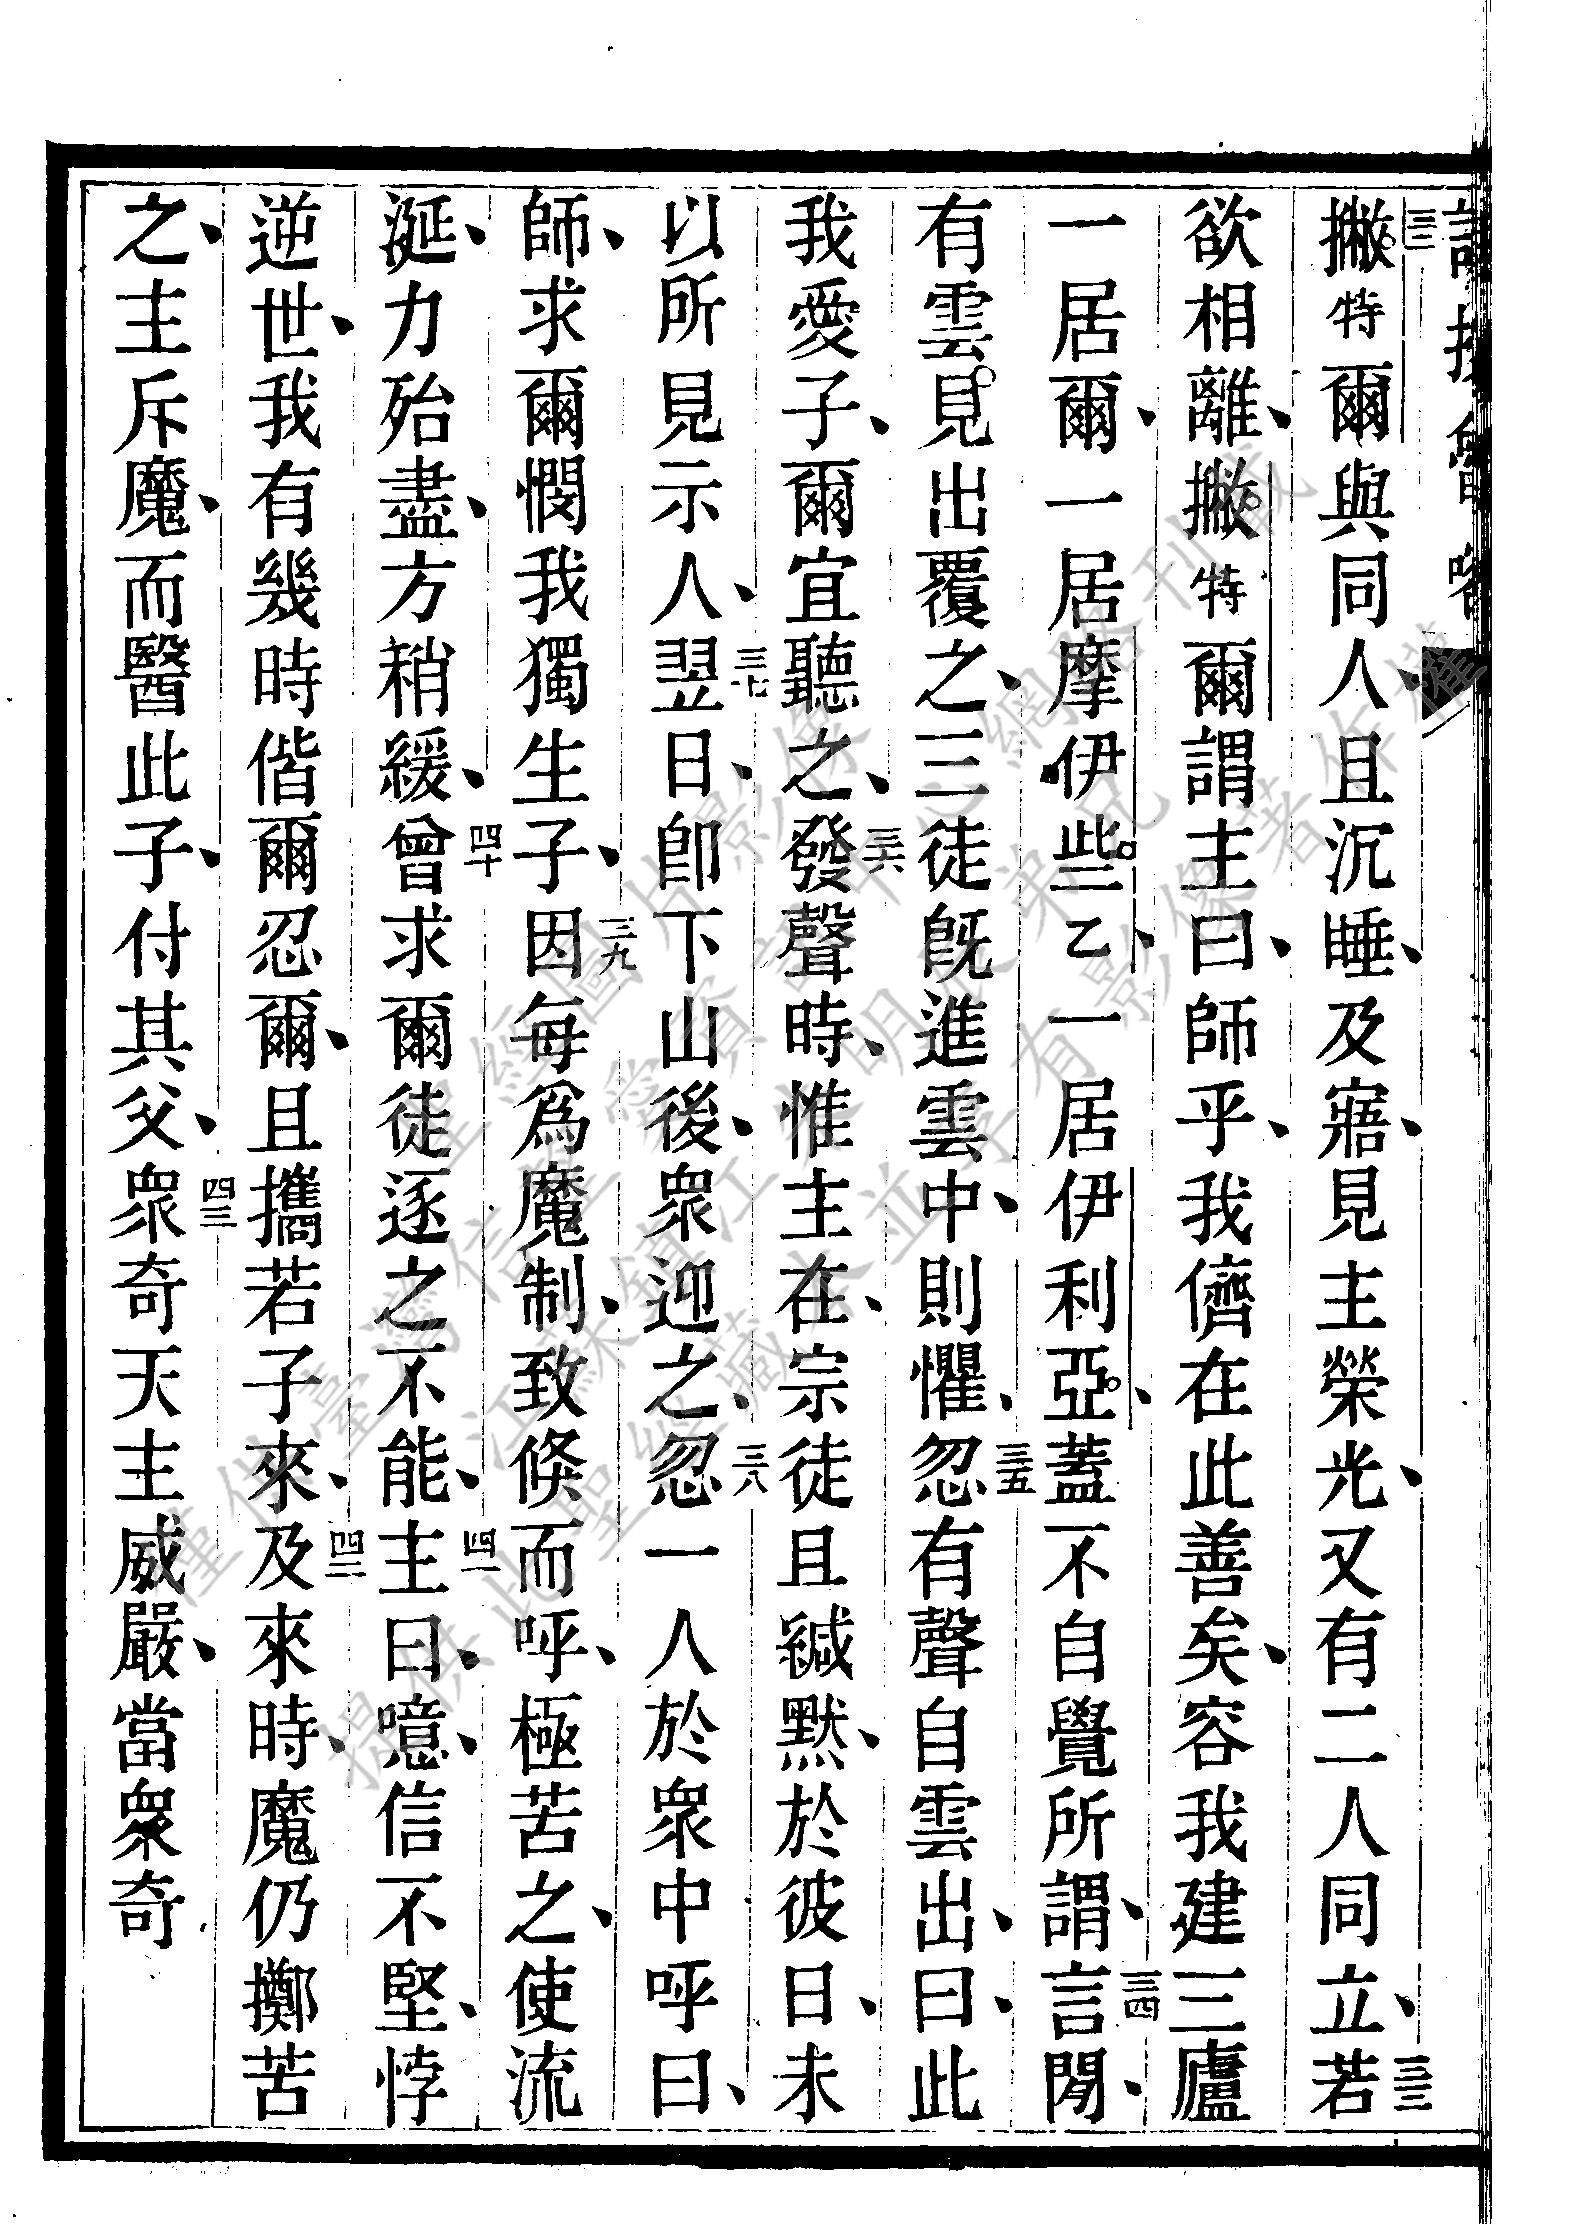 撇特爾與同人、且沉睡、及寤、見主榮光、又有二人同立、若
欲相離、撇特爾謂主曰、師乎、我儕在此善矣、容我建三廬
一居爾、一居摩伊些乙、一居伊利亞、蓋不自覺所謂、言閒、
有雲見出覆之、三徒旣進雲中、則懼、忽有聲自雲出、曰、此
我愛子、爾宜聽之、發聲時、惟主在、宗徒且緘默、於彼日、未
以所見示人、翌日、卽下山後、衆迎之、忽一人於衆中呼曰、
師、求爾憫我獨生子、因每爲魔制、致倏而呼、極苦之、使流
涎、力殆盡、方稍緩、曾求爾徒逐之不能、主曰、噫、信不堅、悖
逆世、我有幾時偕爾忍爾、且攜若子來、及來時、魔仍擲苦
之、主斥魔、而醫此子、付其父、衆奇天主威嚴、當衆奇
三二
三三
三四
三五
三六
三七
三八
三九
四十
四一
四二
四三